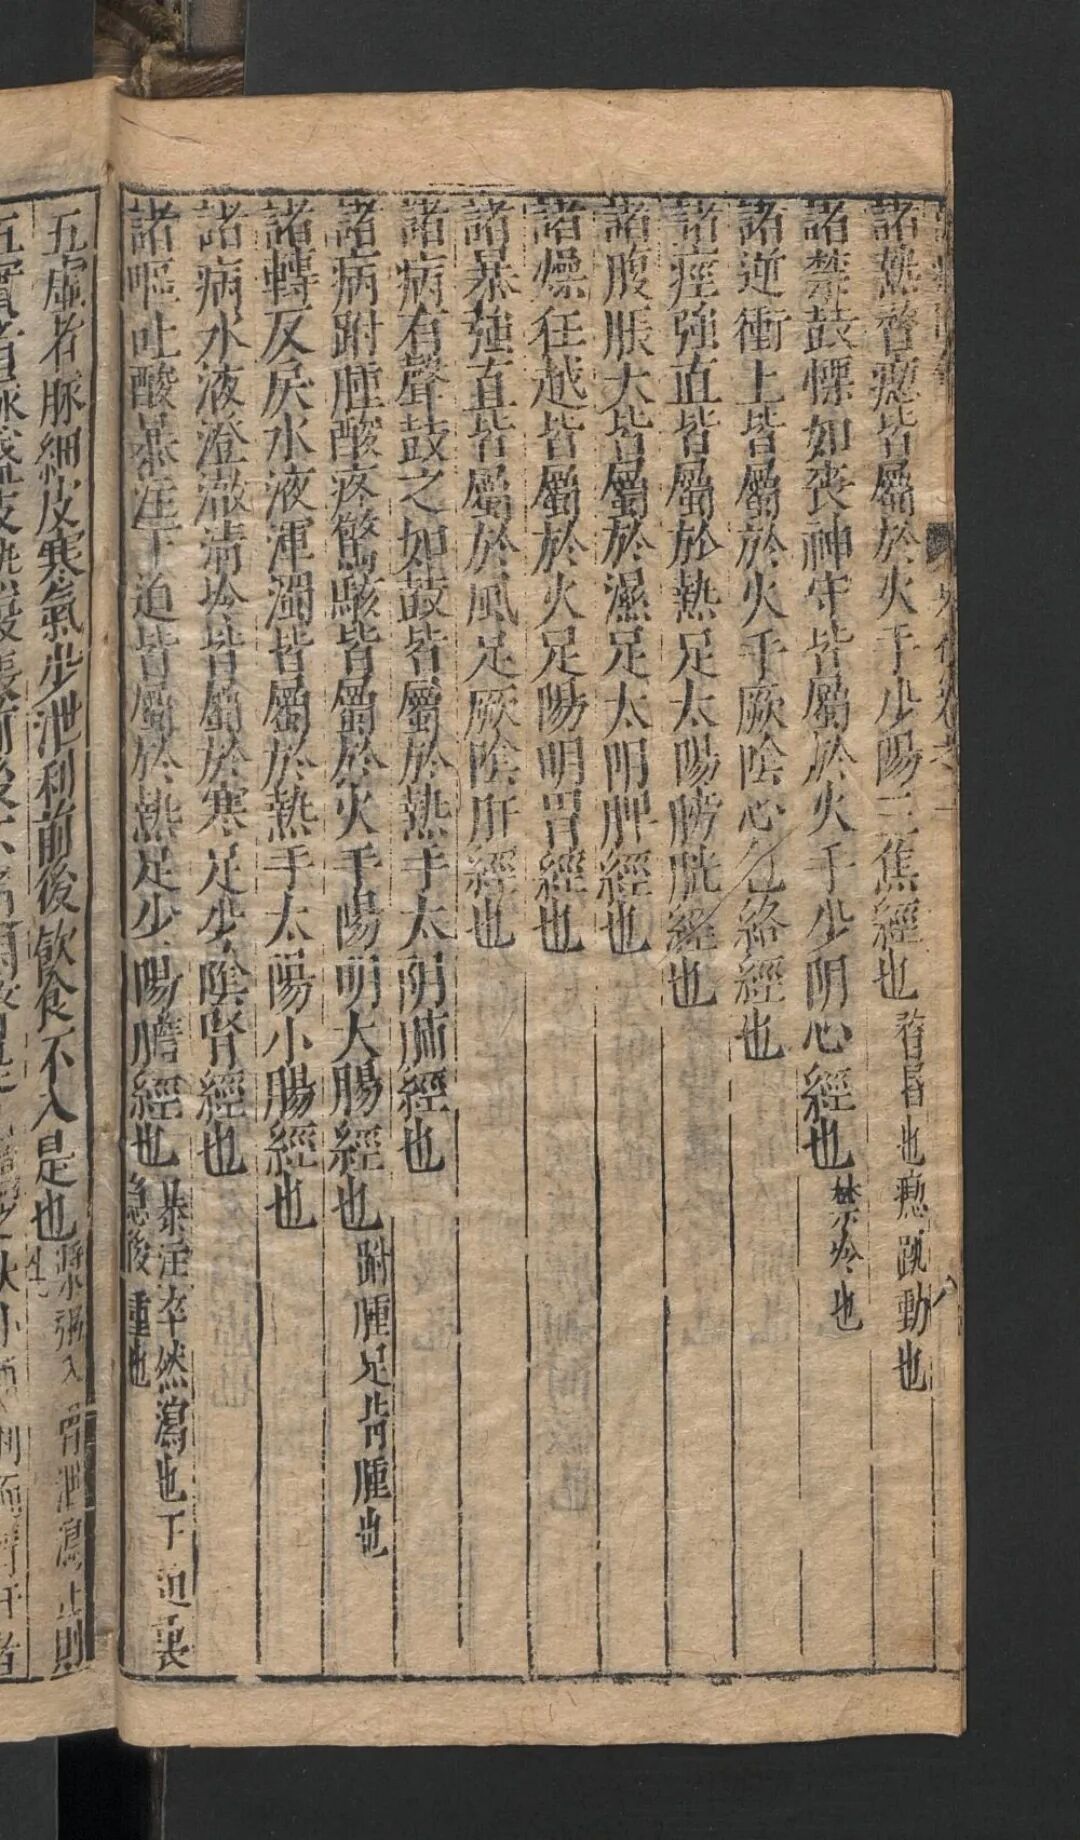 諸熱瞀瘛皆屬於火手少陽三焦經也瞀昏也瘛跳動也
諸禁鼓慄如丧神守皆屬於火手少阴心經也禁冷也
諸逆衝上皆屬於火手厥陰心包絡經也
諸痙強直皆屬於熱足太陽膀胱經也
諸腹脹大皆屬於濕足太阴脾經也
諸燥狂越皆屬於火足陽明胃經也
諸暴強直皆屬於風足厥陰肝經也
諸病有聲鼓之如鼓皆屬於熱手太阴肺經也
諸病跗腫酸疼驚駭皆屬於火手陽明大腸經也跗腫足背腫也
諸轉反戾水液渾濁皆屬於熱手太陽小腸經也
諸病水液澄澈清冷皆屬於寒足少陰腎經也
諸嘔吐酸暴注下迫皆屬於熱足少陽膽經也暴注卒然瀉也下迫裏急後重也
五虛者脉細皮寒氣少泄利前後飲食不入是也漿粥入胃泄瀉止則